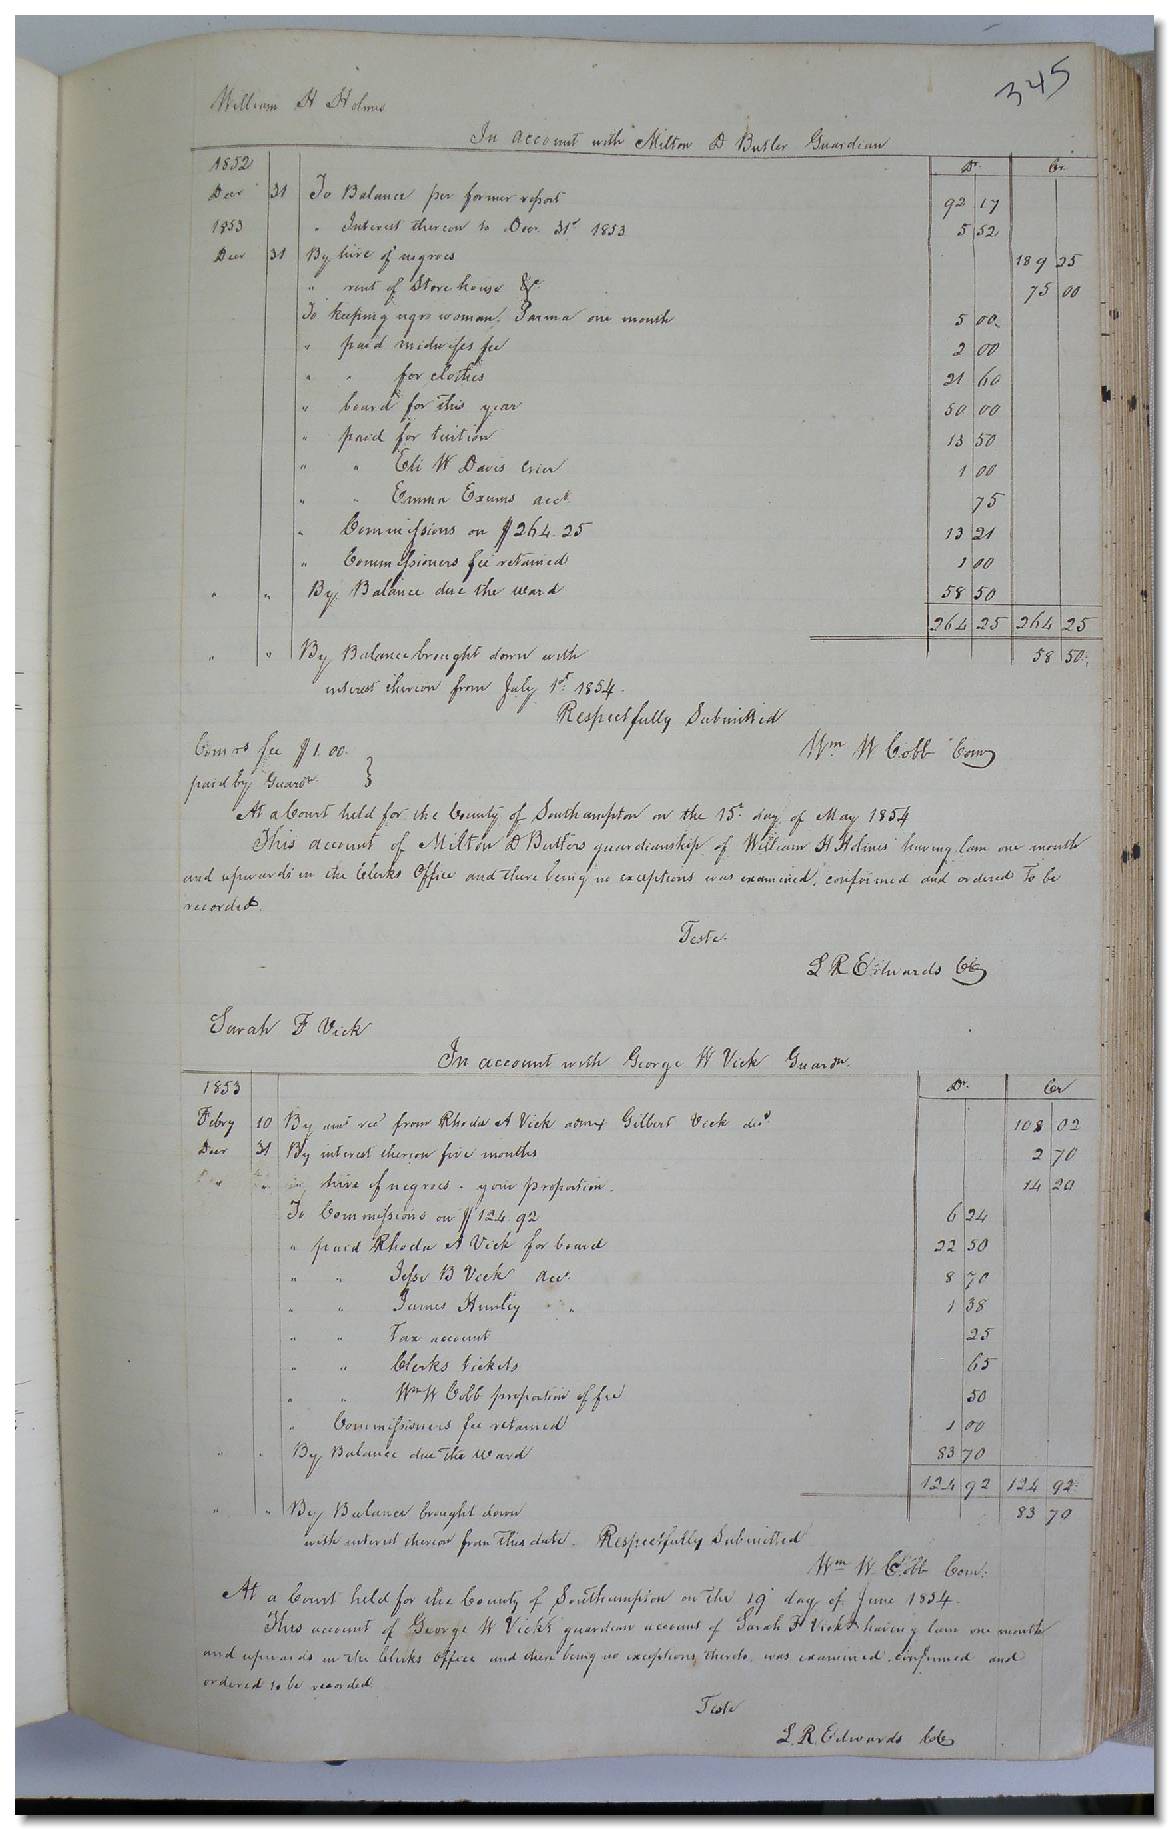 345
William H Holmes
In account with Milton D Butler Guardian
1852 Dr. Cr.
Decr 31 To Balance per former report 92 17
1853 " Interest thereon to Decr. 31st 1853 5 52
Decr 31 By hire of negroes 189 25
" rent of Store house &c 75 00
To keeping negro woman one month 5 00
" paid midwifes fee 2 00
" " for clothes 21 60
" board for this year 50 00
" paid for tuition 13 50
" " Eli W Davis crier 1 00
" " Emma Exums acct 75
" Commissions on $264.25 13 21
" Commissioners fee retained 1 00
" " By Balance due the ward 58 50
264 25 264 25
" " By Balance brought down with 58 50
interest thereon from July 1st 1854.
Respectfully Submitted
Comrs fee $1.00. Wm W Cobb Comr
paid by Guardn }
At a Court held for the County of Southampton on the 15th day of May 1854
This account of Milton D Butlers guardianship of William H Holmes having lain one month
and upwards in the Clerks Office and there being no exceptions was examined, confirmed and ordered to be
recorded.
Teste.
L R Edwards CC
Sarah F Vick
In account with George W Vick Guardn.
1853 Dr. Cr
Febry 10 By amt recd from Rhoda A Vick admx Gilbert Vick decd 108 02
Decr 31 By interest thereon five months 2 70
" hire of negroes - your proportion. 14 20
To Commissions on $124.92 6 24
" paid Rhoda A Vick for board 22 50
" " Jesse B Vick acc. 8 70
" " James " 1 38
" " Tax account 25
" " Clerks tickets 65
" " Wm W Cobb proportion of fee 50
" Commissioners fee retained 1 00
" " By Balance due the ward 83 70
124 92 124 92
" " By Balance brought down 83 70
with interest thereon from this date. Respectfully Submitted
Wm W. Cobb Com.
At a Court held for the County of Southampton on the 19th day of June 1854.
This account of George W Vick's guardian account of Sarah F Vick having lain one month
and upwards in the Clerks office and there being no exceptions thereto, was examined, confirmed and
ordered to be recorded
Teste
L. R. Edwards CC